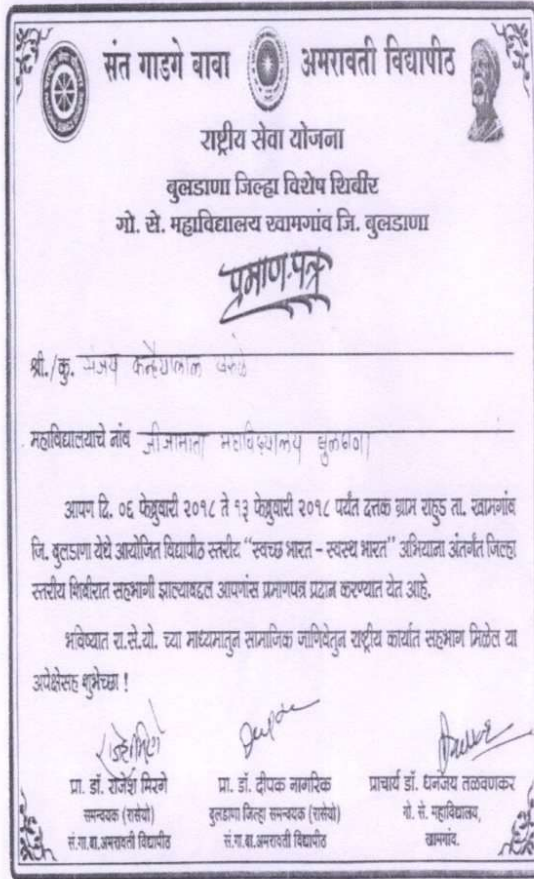 संत गाडगे बाबा अमरावती विद्यापीठ
राष्ट्रीय सेवा योजना
बुलडाणा जिल्हा विशेष शिबीर
गो. से. महाविद्यालय खामगांव जि. बुलडाणा
प्रमाण-पत्र
श्री./कु. संजय कन्हैयालाल
महाविद्यालयाचे नांव जीजामाता महाविद्यालय बुलडाणा
आपण दि. ०६ फेब्रुवारी २०१८ ते १३ फेब्रुवारी २०१८ पर्यंत दत्तक ग्राम राहुड ता. खामगांव
जि. बुलडाणा येथे आयोजित विद्यापीठ स्तरीय “स्वच्छ भारत – स्वस्थ भारत” अभियाना अंतर्गत जिल्हा
स्तरीय शिबीरात सहभागी झाल्याबद्दल आपणांस प्रमाणपत्र प्रदान करण्यात येत आहे.
भविष्यात रा.से.यो. च्या माध्यमातुन सामाजिक जाणिवेतुन राष्ट्रीय कार्यात सहभाग मिळेल या
अपेक्षेसह शुभेच्छा !
प्रा. डॉ. राजेश मिरगे प्रा. डॉ. दीपक नागरिक प्राचार्य डॉ. धनंजय तळवणकर
समन्वयक (रासेयो) बुलडाणा जिल्हा समन्वयक (रासेयो) गो. से. महाविद्यालय,
सं.गा.बा.अमरावती विद्यापीठ सं.गा.बा.अमरावती विद्यापीठ खामगांव.